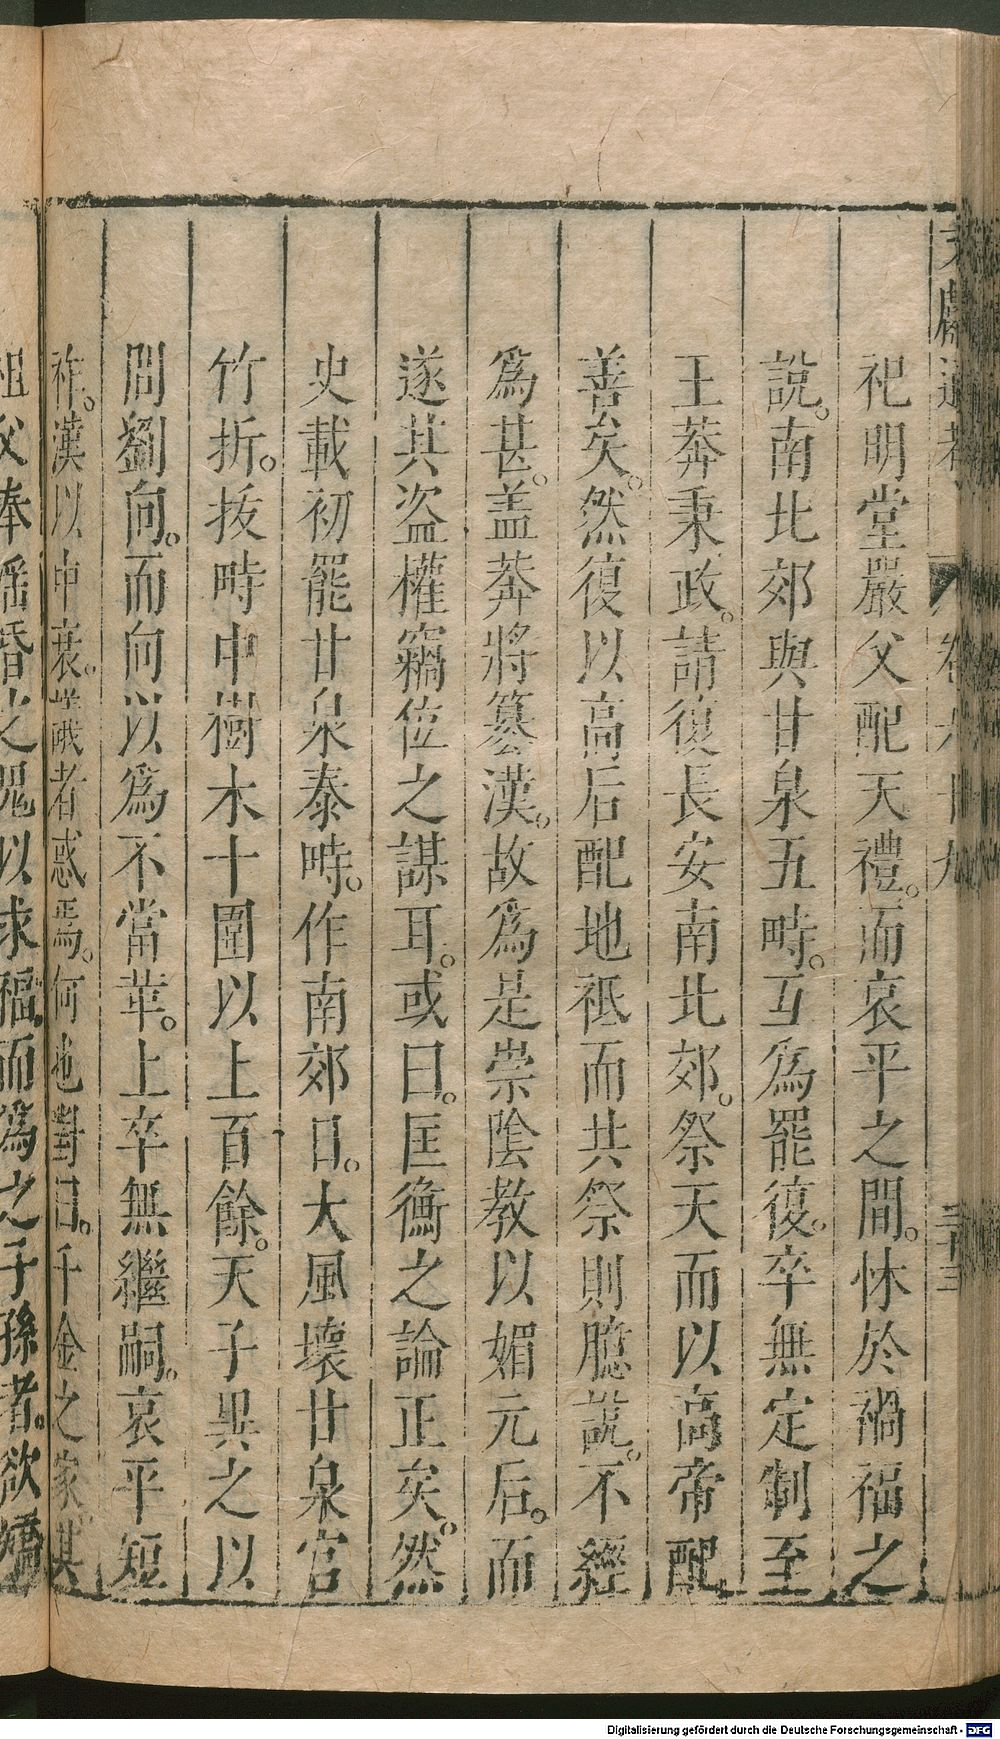 文獻通考 卷六十九 三十三
祀明堂嚴父配天禮。而哀平之間。怵於禍福之
說。南北郊與甘泉五畤。互為罷復。卒無定制至
王莽秉政。請復長安南北郊。祭天而以高帝配
善矣。然復以高后配地祗而共祭則臆説。不經
為甚。盖莽將簒漢。故為是崇陰教以媚元后。而
遂其盗權竊位之謀耳。或曰。匡衡之論正矣。然
史載初罷甘泉泰畤。作南郊日。大風壞甘泉宫
竹折。拔畤中樹木十圍以上百餘。天子異之以
問劉向。而向以為不當革。上卒無繼嗣。哀平短
祚。漢以中衰。議者惑焉。何也對曰。千金之家。其
祖父奉淫昏之鬼以求福。而為之子孫者。欲矯
Digitalisierung gefördert durch die Deutsche Forschungsgemeinschaft - DFG